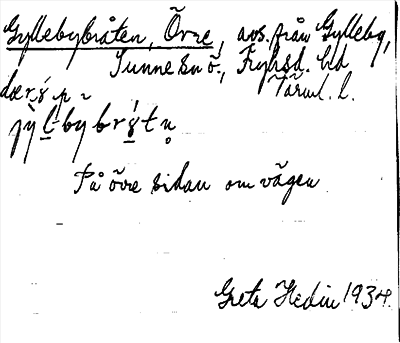 Gyllebybråten, Övre, avs. från Gylleby,
Sunne sn ö., Fryksd. hd
Värml. l.
På övre sidan om vägen
Greta Hedin 1934.